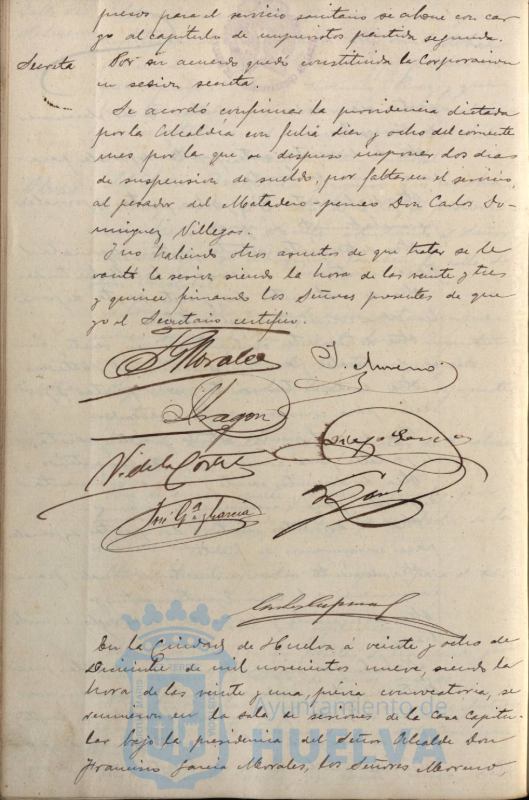 presos para el servicio sanitario se abone con car-
go al capítulo de imprevistos partida segunda.
Secreta
Por su acuerdo quedó constituida la Corporacion
en sesion secreta.
Se acordó confirmar la providencia dictada
por la Alcaldía con fecha diez y ocho del corriente
mes por la que se dispuso imponer dos dias
de suspension de sueldo, por faltas en el servicio,
al pesador del Matadero-peso Don Carlos Do-
minguez Villegas.
Y no habiendo otros asuntos de que tratar se le
vantó la sesion siendo la hora de las veinte y tres
y quince firmando los Señores presentes de que
yo el Secretario certifico.
Morales
J. Moreno
Aragon
Diego Garcia
V. de la Corte
José Gª y Garcia
En la Ciudad de Huelva á veinte y ocho de
Diciembre de mil novecientos nueve, siendo la
hora de las veinte y una, prévia convocatoria, se
reunieron en la sala de sesiones de la Casa Capitu-
lar bajo la presidencia del Señor Alcalde Don
Francisco Garcia Morales, los Señores Moreno,
Ayuntamiento de
HUELVA